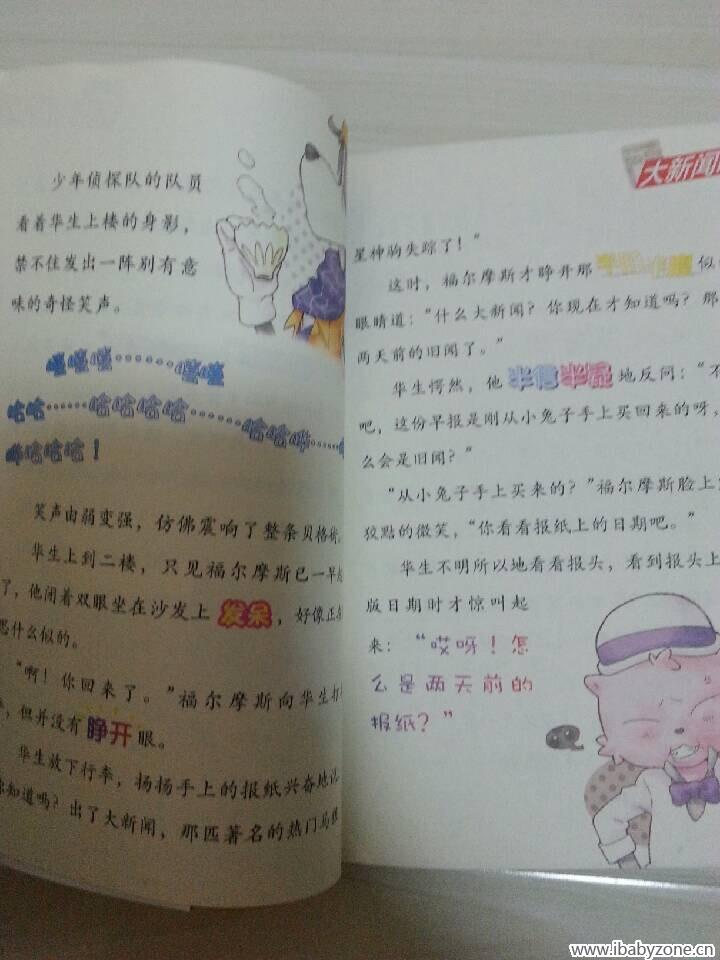 少年侦探队的队员
看着华生上楼的身影，
禁不住发出一阵别有意
味的奇怪笑声。
嘻嘻嘻……嘻嘻
咕咕……哈哈哈哈……哈哈哗……
哗哈哈哈！
笑声由弱变强，仿佛震响了整条贝格街
华生上到二楼，只见福尔摩斯已一早
了，他闭着双眼坐在沙发上发呆，好像正
思什么似的。
“啊！你回来了。”福尔摩斯向华生打
但并没有睁开眼。
华生放下行李，扬扬手上的报纸兴奋地
你知道吗？出了大新闻，那匹著名的热门马
大新闻
星神驹失踪了！”
这时，福尔摩斯才睁开那 似
眼睛道：“什么大新闻？你现在才知道吗？那
两天前的旧闻了。”
华生愕然，他半信半疑地反问：“不
吧，这份早报是刚从小兔子手上买回来的呀，
么会是旧闻？”
“从小兔子手上买来的？”福尔摩斯脸上
狡黠的微笑，“你看看报纸上的日期吧。”
华生不明所以地看看报头，看到报头上
版日期时才惊叫起
来：“哎呀！怎
么是两天前的
报纸？”
www.ibabyzone.cn